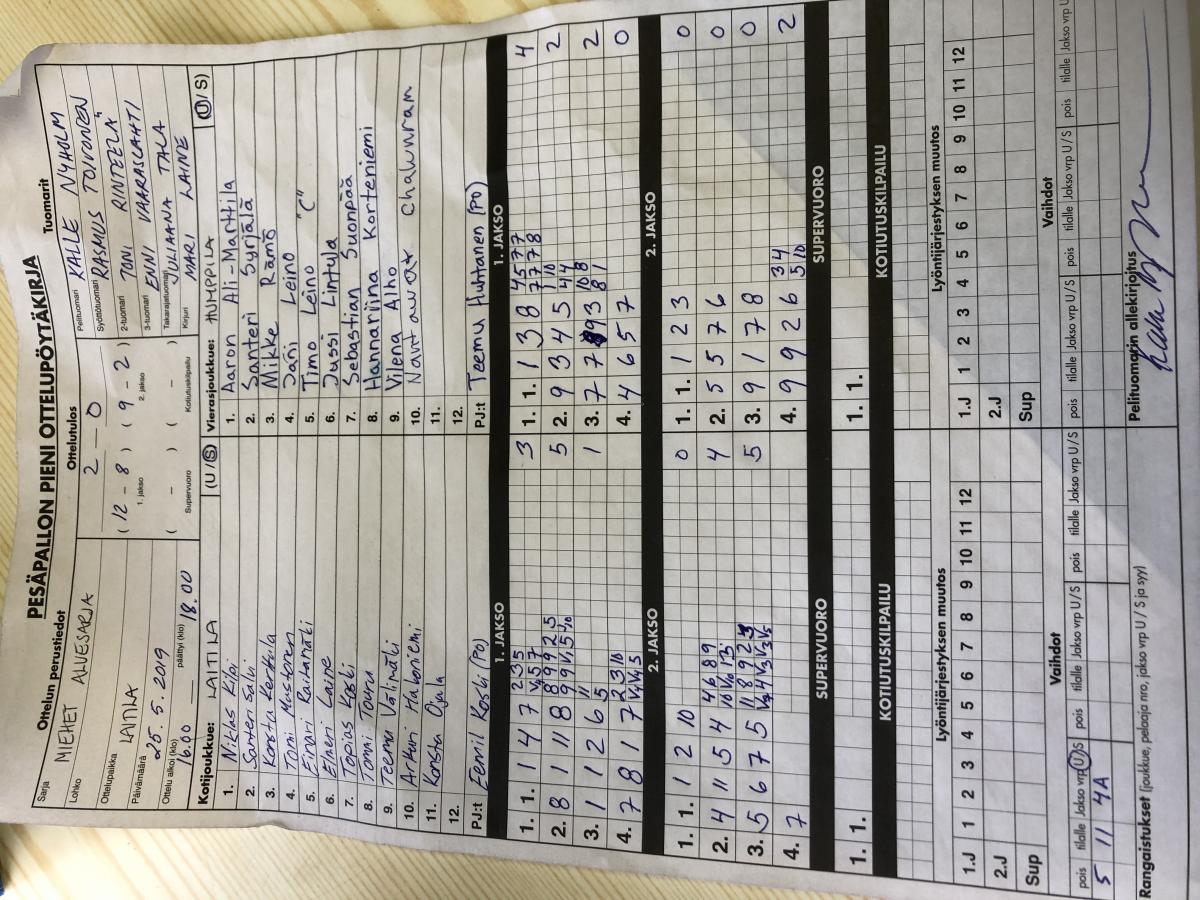 PESÄPALLON PIENI OTTELUPÖYTÄKIRJA
Ottelun perustiedot
Sarja
MIEHET ALUESARJA
Lohko
Ottelupaikka LAITILA
Päivämäärä 25.5.2019
Ottelu alkoi (klo) päättyi (klo)
16.00 18.00
Ottelutulos
2 – 0
( 12 – 8 ) ( 9 – 2 )
1. jakso 2. jakso
( – ) ( – )
Supervuoro Kotiutuskilpailu
Tuomarit
Pelituomari KALLE NYHOLM
Syöttötuomari RASMUS TOIVONEN
2-tuomari TONI RINTEELÄ
3-tuomari ENNI VAARASLAHTI
Takarajatuomari JULIAANA TALA
Kirjuri MARI LAINE
Kotijoukkue: LAITILA (U / S)
1. Niklas Kilpi
2. Santeri Salvi
3. Konsta Kerttula
4. Toni Mustonen
5. Einari Raitamäki
6. Elmeri Laine
7. Topias Koski
8. Tommi Touru
9. Teemu Välimäki
10. Artturi Hakoniemi
11. Konsta Ojala
12.
PJ:t Eemil Koski (PO)
Vierasjoukkue: HUMPPILA (U / S)
1. Aaron Ali-Marttila
2. Santeri Syrjälä
3. Mikke Rämö
4. Jani Leino
5. Timo Leino "C"
6. Jussi Lintula
7. Sebastian Suonpää
8. Hannaniina Korteniemi
9. Vilena Alho
10. Navttawat Chalunram
11.
12.
PJ:t Teemu Huhtanen (PO)
1. JAKSO 1. JAKSO
1. 1. 1 4 7 2 3 5 3
2. 8 1 11 8 8 9 9 2 5 5
3. 1 1 2 6 11 5 1
4. 7 8 1 7 2 3 10
1. 1. 1 3 8 4 5 7 7 7 7 7 8 4
2. 9 3 4 5 1 10 4 4 2
3. 7 7 9 3 10 8 8 1 2
4. 4 6 5 7 0
2. JAKSO 2. JAKSO
1. 1. 1 2 10 0
2. 4 11 5 4 4 6 8 9 4
3. 5 6 7 5 11 8 9 2 5
4. 7
1. 1. 1 2 3 0
2. 5 5 7 6 0
3. 9 1 7 8 0
4. 9 9 2 6 3 4 5 10 2
SUPERVUORO SUPERVUORO
1. 1. 1. 1.
KOTIUTUSKILPAILU KOTIUTUSKILPAILU
Lyöntijärjestyksen muutos Lyöntijärjestyksen muutos
1.J 1 2 3 4 5 6 7 8 9 10 11 12 1.J 1 2 3 4 5 6 7 8 9 10 11 12
2.J 2.J
Sup Sup
Vaihdot Vaihdot
pois tilalle Jakso vrp U / S pois tilalle Jakso vrp U / S pois tilalle Jakso vrp U / S pois tilalle Jakso vrp U / S pois tilalle Jakso vrp U / S pois tilalle Jakso vrp U
5 11 4A
Rangaistukset (joukkue, pelaaja nro, jakso vrp U / S ja syy)
Pelituomarin allekirjoitus